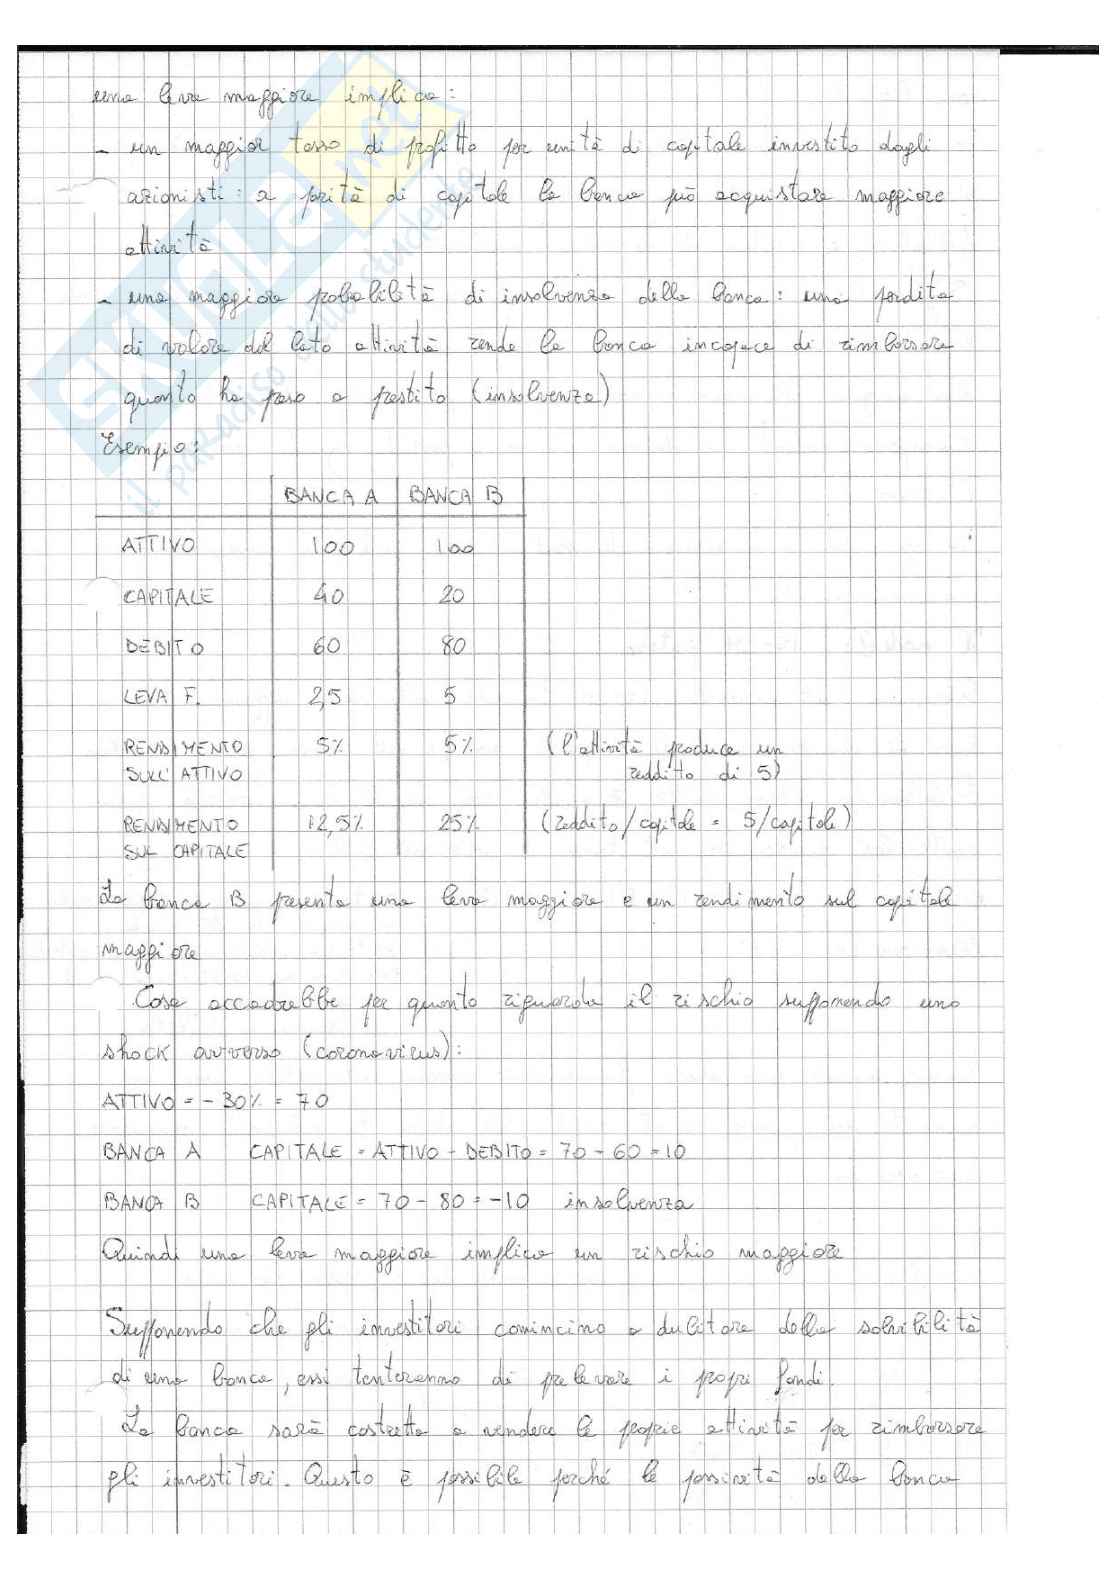 una leva maggiore implica:
- un maggior tasso di profitto per unità di capitale investito dagli
azionisti: a parità di capitale la banca può acquistare maggiore
attività
- una maggiore probabilità di insolvenza della banca: una perdita
di valore del lato attività rende la banca incapace di rimborsare
quanto ha preso a prestito (insolvenza)
Esempio:
BANCA A BANCA B
ATTIVO 100 100
CAPITALE 40 20
DEBITO 60 80
LEVA F. 2,5 5
RENDIMENTO 5% 5% (l'attività produce un
SULL'ATTIVO reddito di 5)
RENDIMENTO 12,5% 25% (reddito/capitale = 5/capitale)
SUL CAPITALE
La banca B presenta una leva maggiore e un rendimento sul capitale
maggiore
Cosa accadrebbe per quanto riguarda il rischio supponendo uno
shock avverso (coronavirus):
ATTIVO = - 30% = 70
BANCA A CAPITALE = ATTIVO - DEBITO = 70 - 60 = 10
BANCA B CAPITALE = 70 - 80 = -10 insolvenza
Quindi una leva maggiore implica un rischio maggiore
Supponendo che gli investitori comincino a dubitare della solvibilità
di una banca, essi tenteranno di prelevare i propri fondi.
La banca sarà costretta a vendere le proprie attività per rimborsare
gli investitori. Questo è possibile perché le passività della banca
SKUOLA.net
il paradiso dello studente